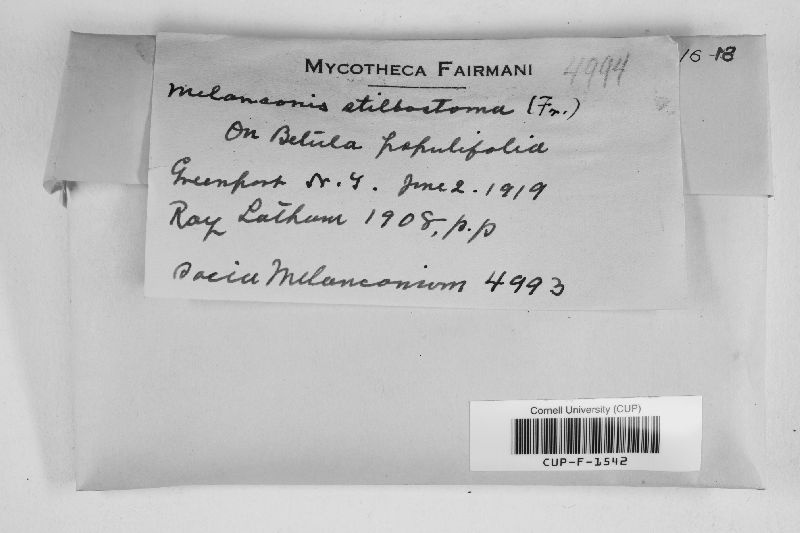 16-18
MYCOTHECA FAIRMANI
4994
Melanconis stilbostoma (Fr.)
On Betula populifolia
Greenport N.Y. June 2. 1919
Roy Latham 1908, p.p
socia Melanconium 4993
Cornell University (CUP)
CUP-F-1542